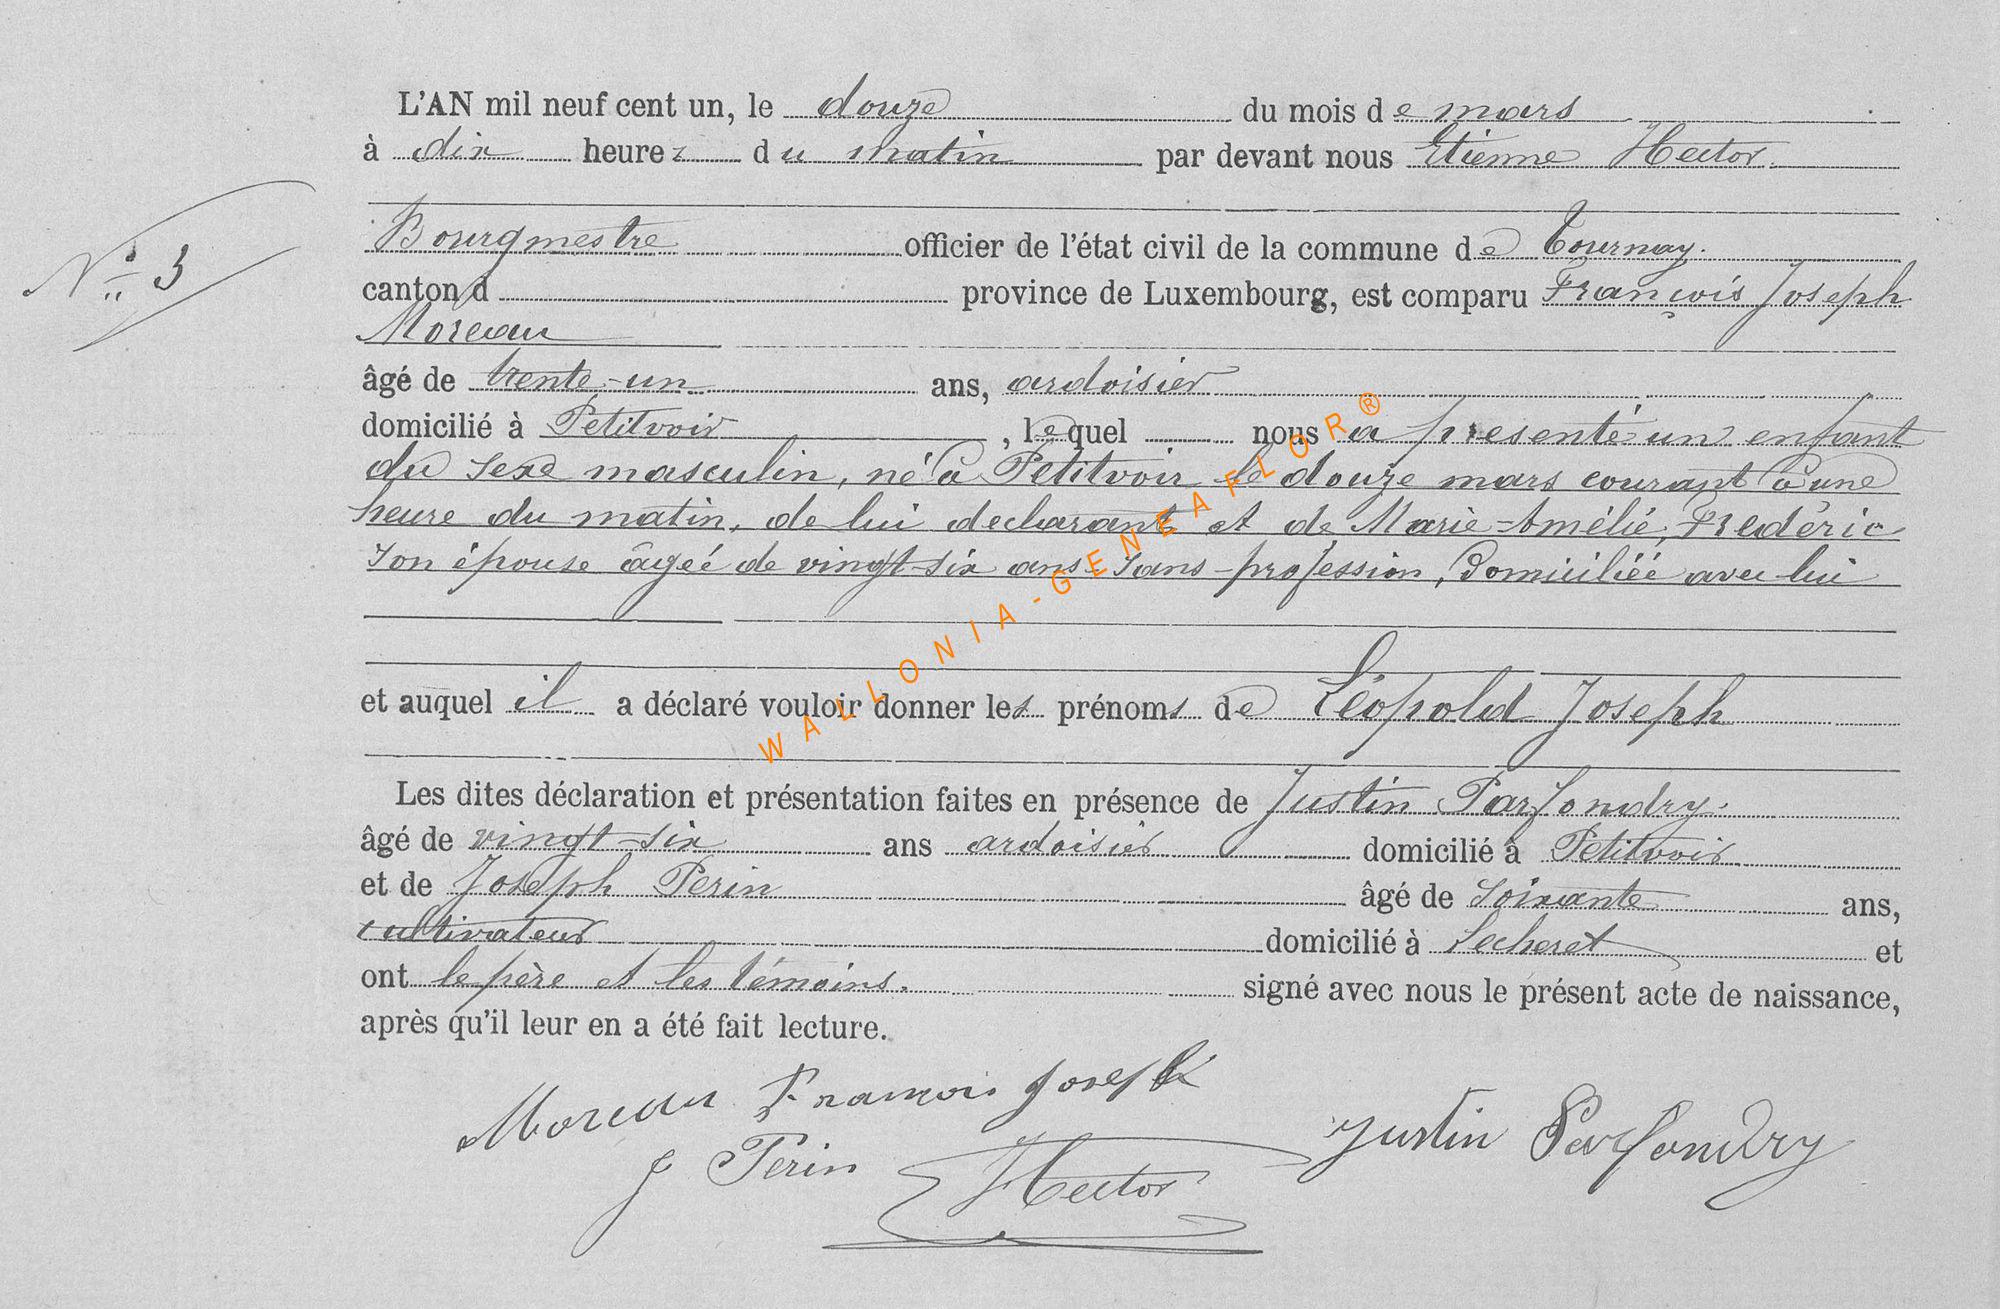 L'AN mil neuf cent un, le douze du mois de mars
à dix heures du matin par devant nous Etienne Hector
Bourgmestre officier de l'état civil de la commune de Tournay.
N° 3
canton d province de Luxembourg, est comparu François Joseph
Moreau
âgé de trente-un ans, ardoisier
domicilié à Petitvoir, lequel nous a présenté un enfant
du sexe masculin, né à Petitvoir le douze mars courant à une
heure du matin, de lui déclarant et de Marie-Amélie, Frédéric
son épouse âgée de vingt-six ans sans-profession, domiciliée avec lui
et auquel il a déclaré vouloir donner les prénoms de Léopold Joseph
Les dites déclaration et présentation faites en présence de Justin Parfondry.
âgé de vingt-six ans ardoisier domicilié à Petitvoir
et de Joseph Perin âgé de soixante ans,
cultivateur domicilié à Lecheret et
ont le père et les témoins. signé avec nous le présent acte de naissance,
après qu'il leur en a été fait lecture.
Moreau François Joseph
Justin Parfondry
J Perin
Hector
WALLONIA-GENEAFLOR®